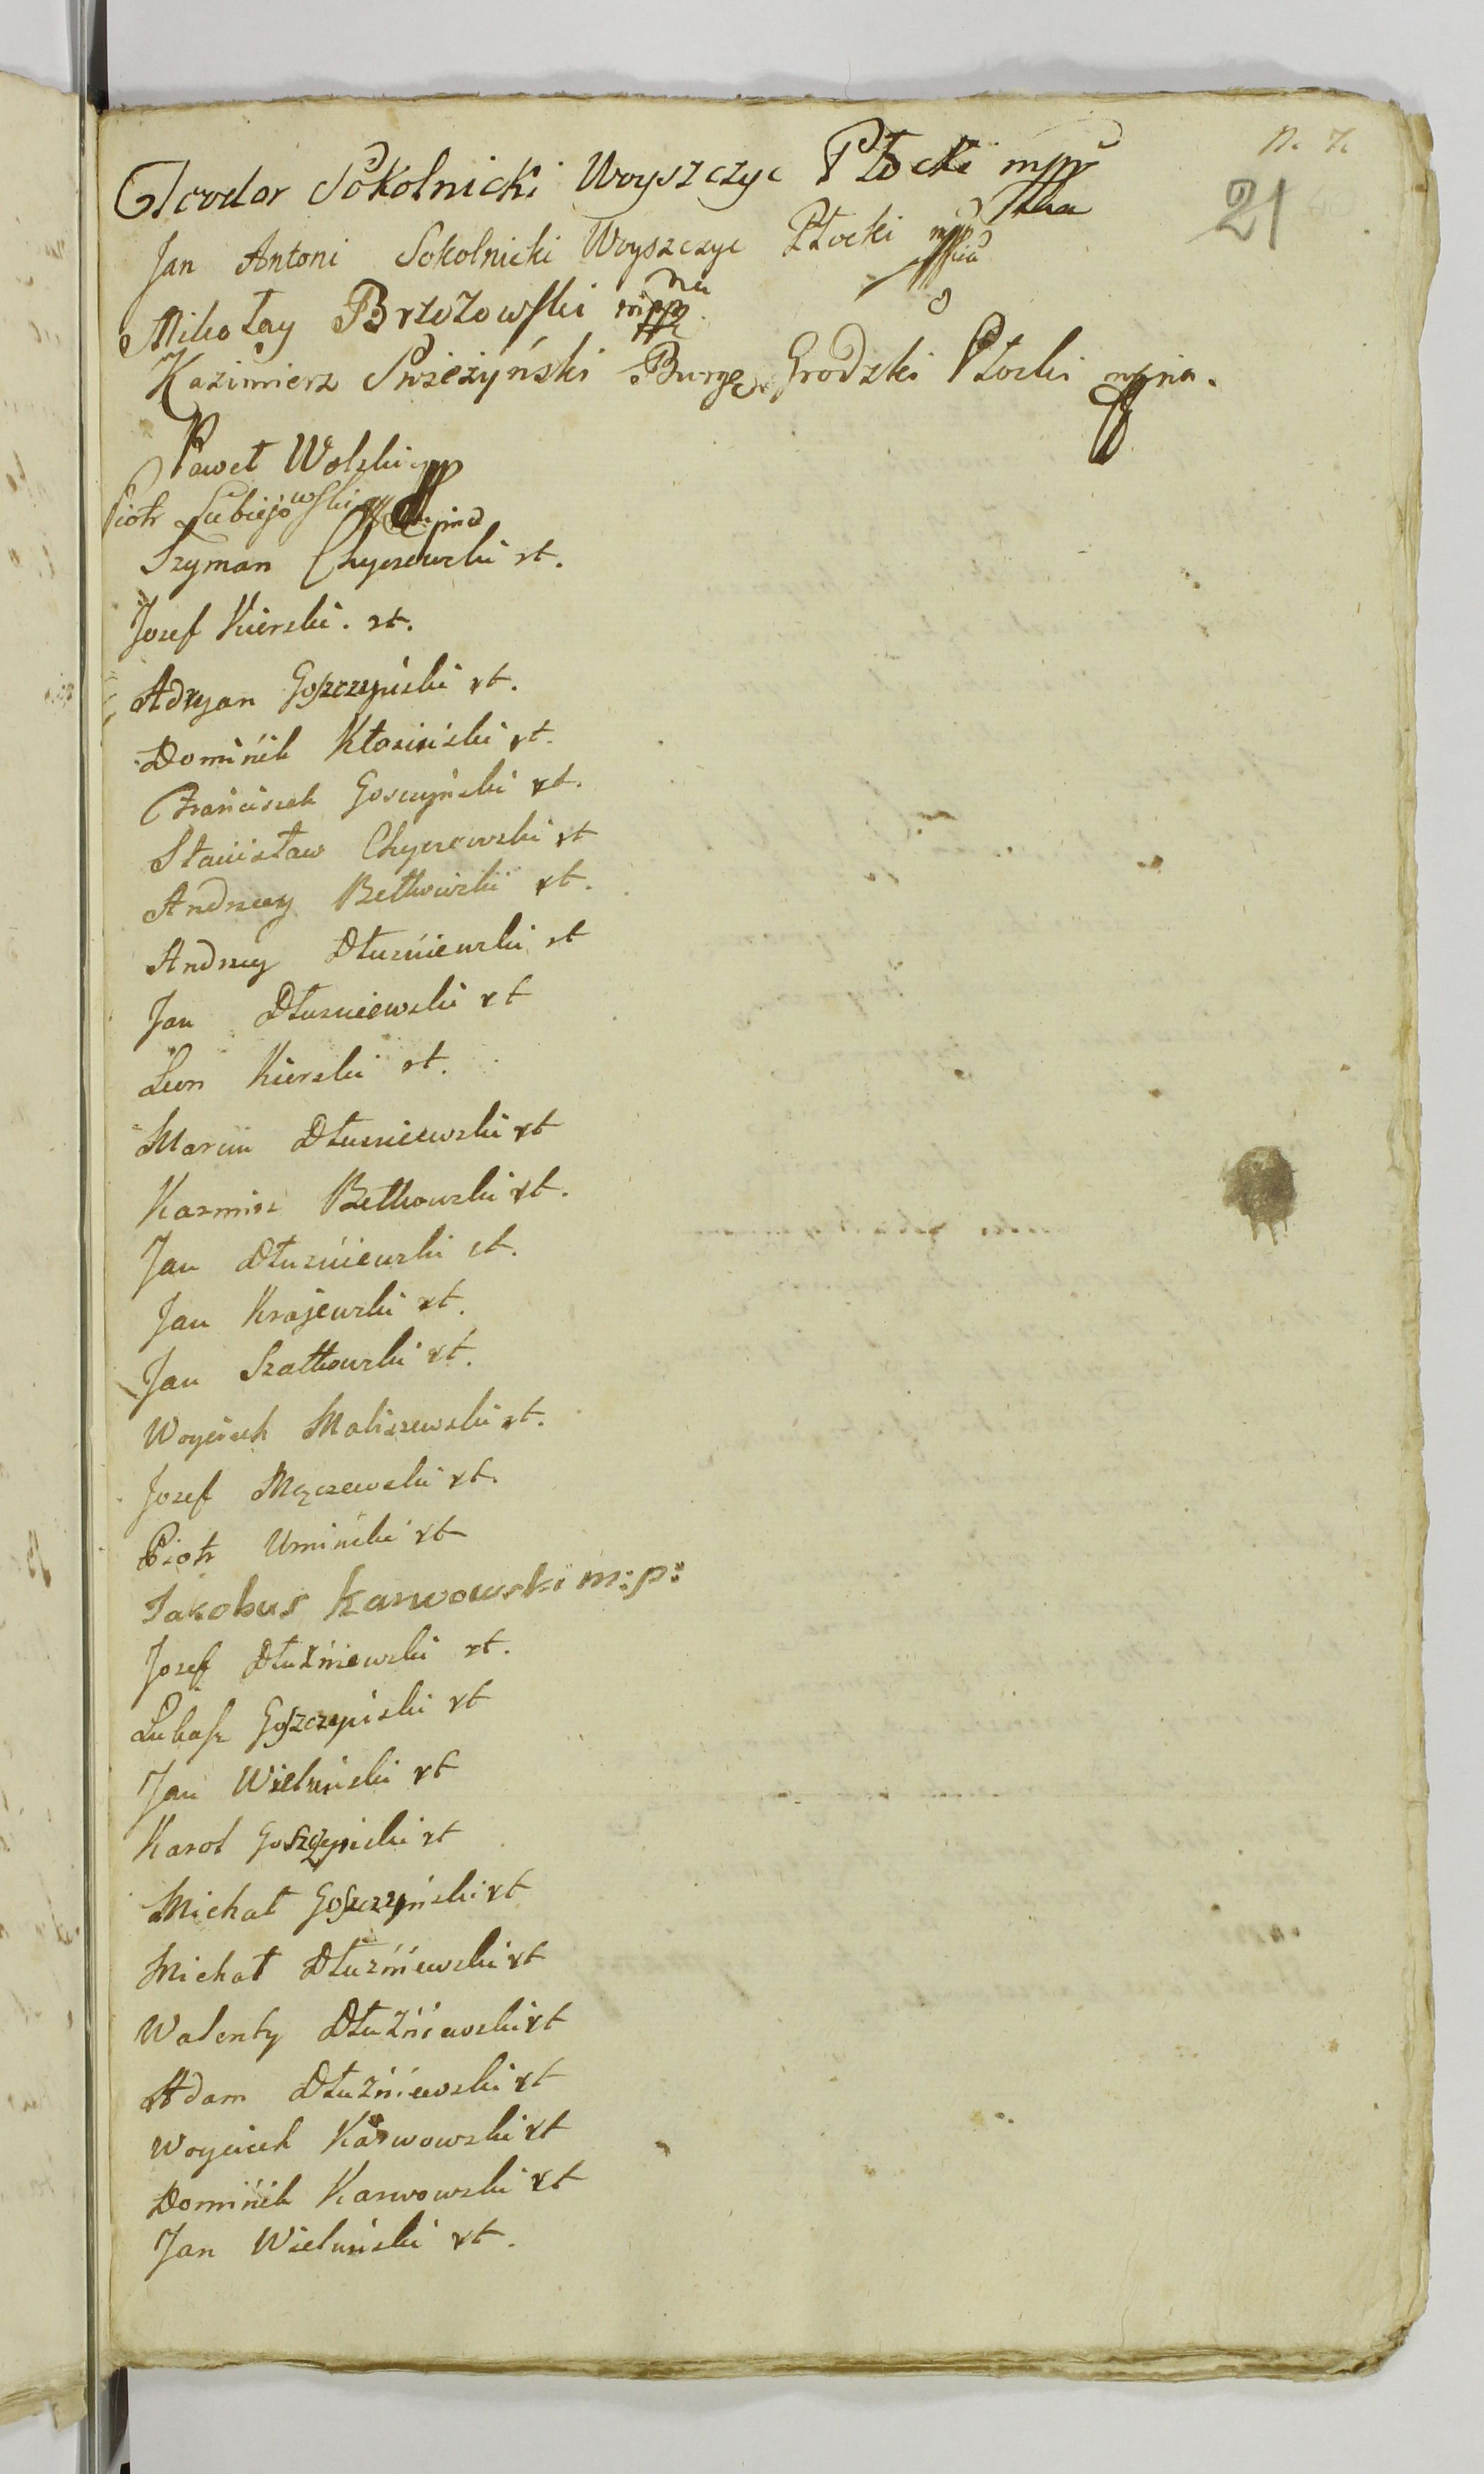 N. 7.
21
Teodor Sokolnicki Woyszczyc Płocki mppr
Jan Antoni Sokolnicki Woyszczyc Płocki mpp
Mikołay Brzozowski mpp
Kazimierz Swieżyński Burgr. Grodzki Płocki mppria.
Paweł Wolski mpp
Piotr Lubiejowski
Szyman Chyczewski xt.
Josef Kierski. xt.
Adryan Goszczyński xt.
Dominik Kłosiński xt.
Franciszek Gosczyński xt.
Stanisław Chyczewski xt
Andrzey Betkowski xt.
Andrzey Dłuzniewski xt
Jan Dłuzniewski xt
Leon Kierski xt.
Marcin Dłuzniewski xt
Kazmirz Betkowski xt.
Jan Dłuzniewski xt.
Jan Krajewski xt.
Jan Szatkowski xt.
Woyciech Maliszewski xt.
Josef Męczewski xt.
Piotr Uminski xt
Jakobus Karwowski m:p:
Josef Dłużniewski xt.
Łukasz Goszczyński xt
Jan Wieluński xt
Karol Goszczyński xt
Michał Goszczyński xt
Michał Dłuzniewski xt
Walenty Dłużniewski xt
Adam Dłużniewski xt
Woyciech Karwowski xt
Dominik Karwowski xt
Jan Wieluński xt.